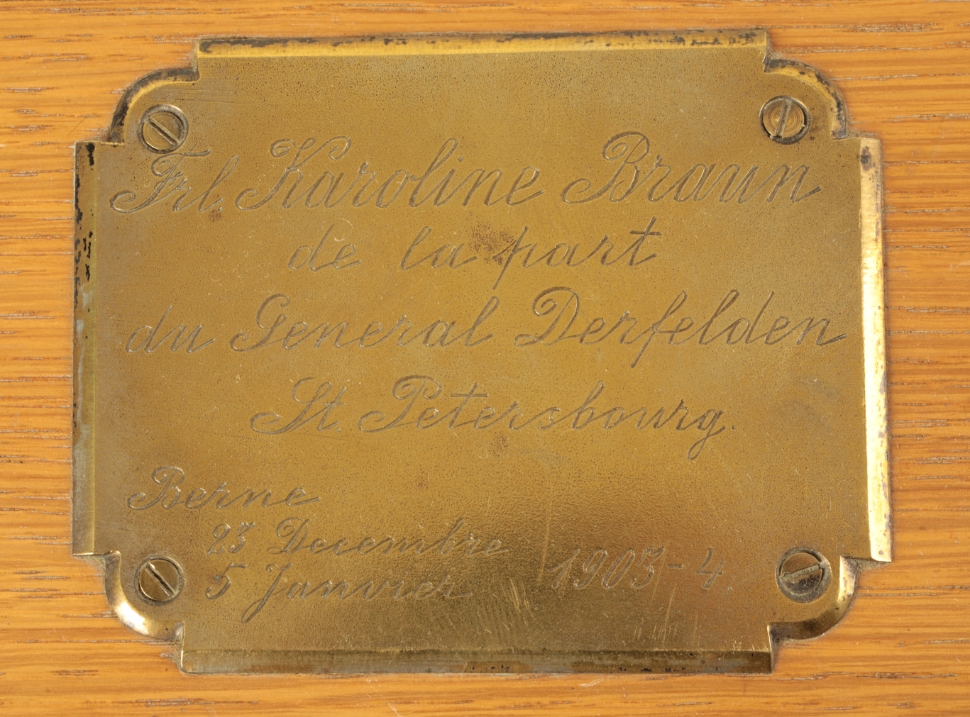 Frl. Karoline Braun
de la part
du General Derfelden
St. Petersbourg.
Berne
23 Decembre
5 Janvier 1903-4